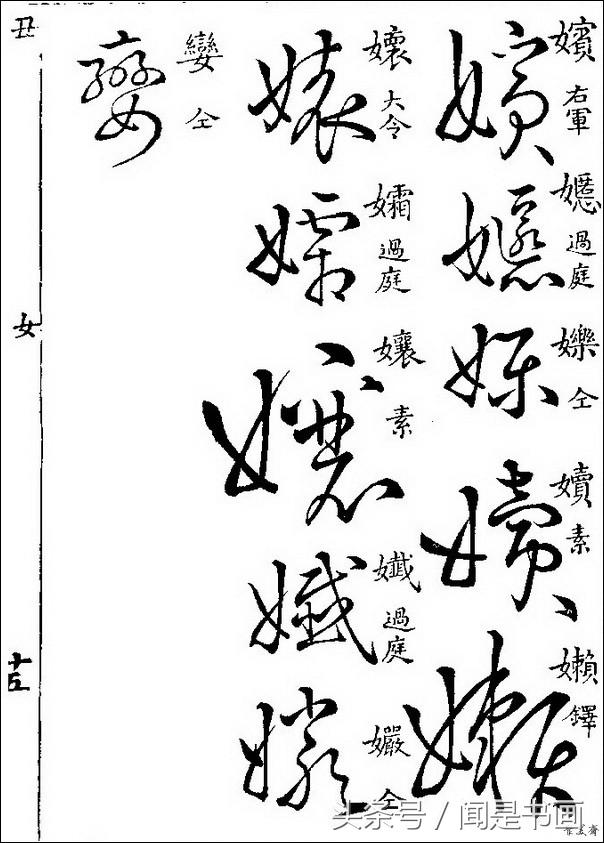 嬪 右軍
㜯 過庭
嬫 仝
嬻 素
嬾 鐸
孃 大令
孀 過庭
孃 素
孅 過庭
孍 仝
孌 仝
丑
女
十五
头条号 / 闻是书画